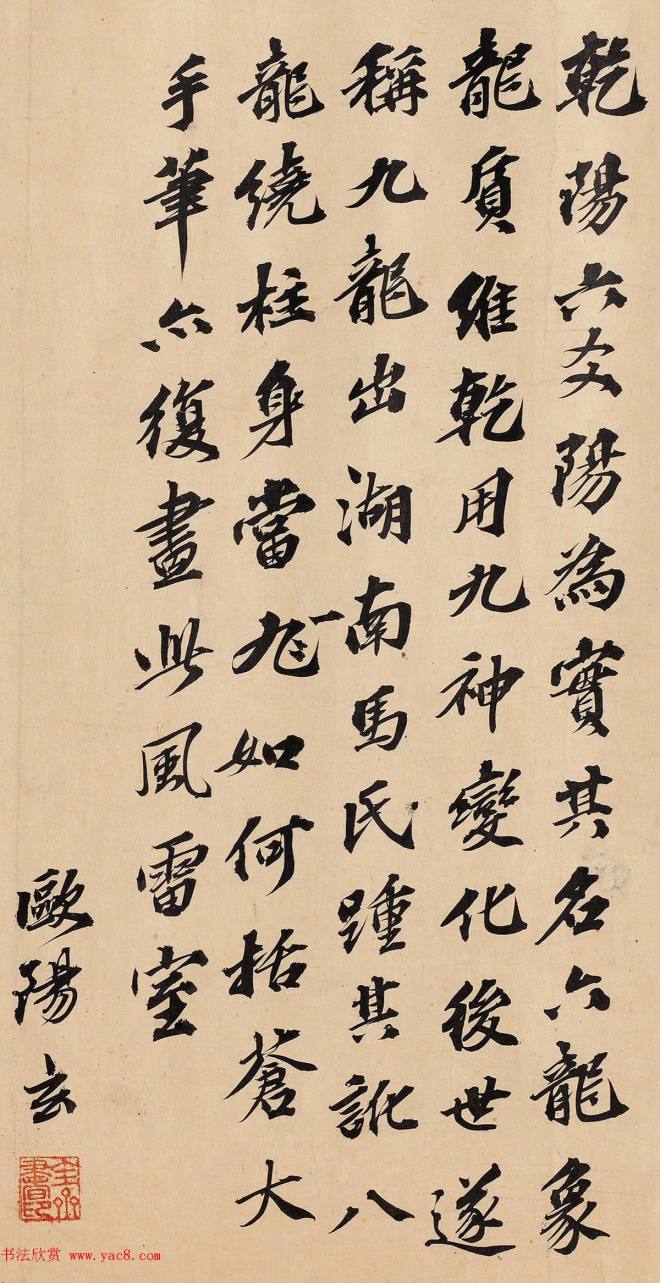 乾陽六爻陽為實其名六龍象
龍質維乾用九神變化後世遂
稱九龍出湖南馬氏踵其訛八
龍繞柱身當九如何括蒼大
手筆亦復畫此風雷室
歐陽玄
书法欣赏 www.yac8.com